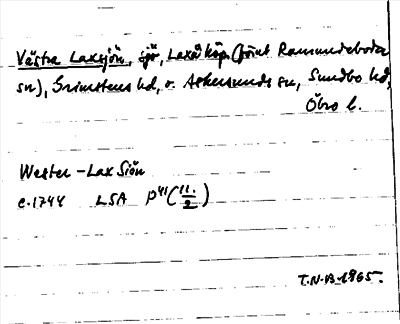 Västra Laxsjön, sjö, Laxå köp. (förut Ramundeboda
sn), Grimstens hd, o. Askersunds sn, Sundbo hd,
Öbro l.
Wester-Lax Siön
c. 1744 LSA P41 (11./2)
T.N-B 1965.